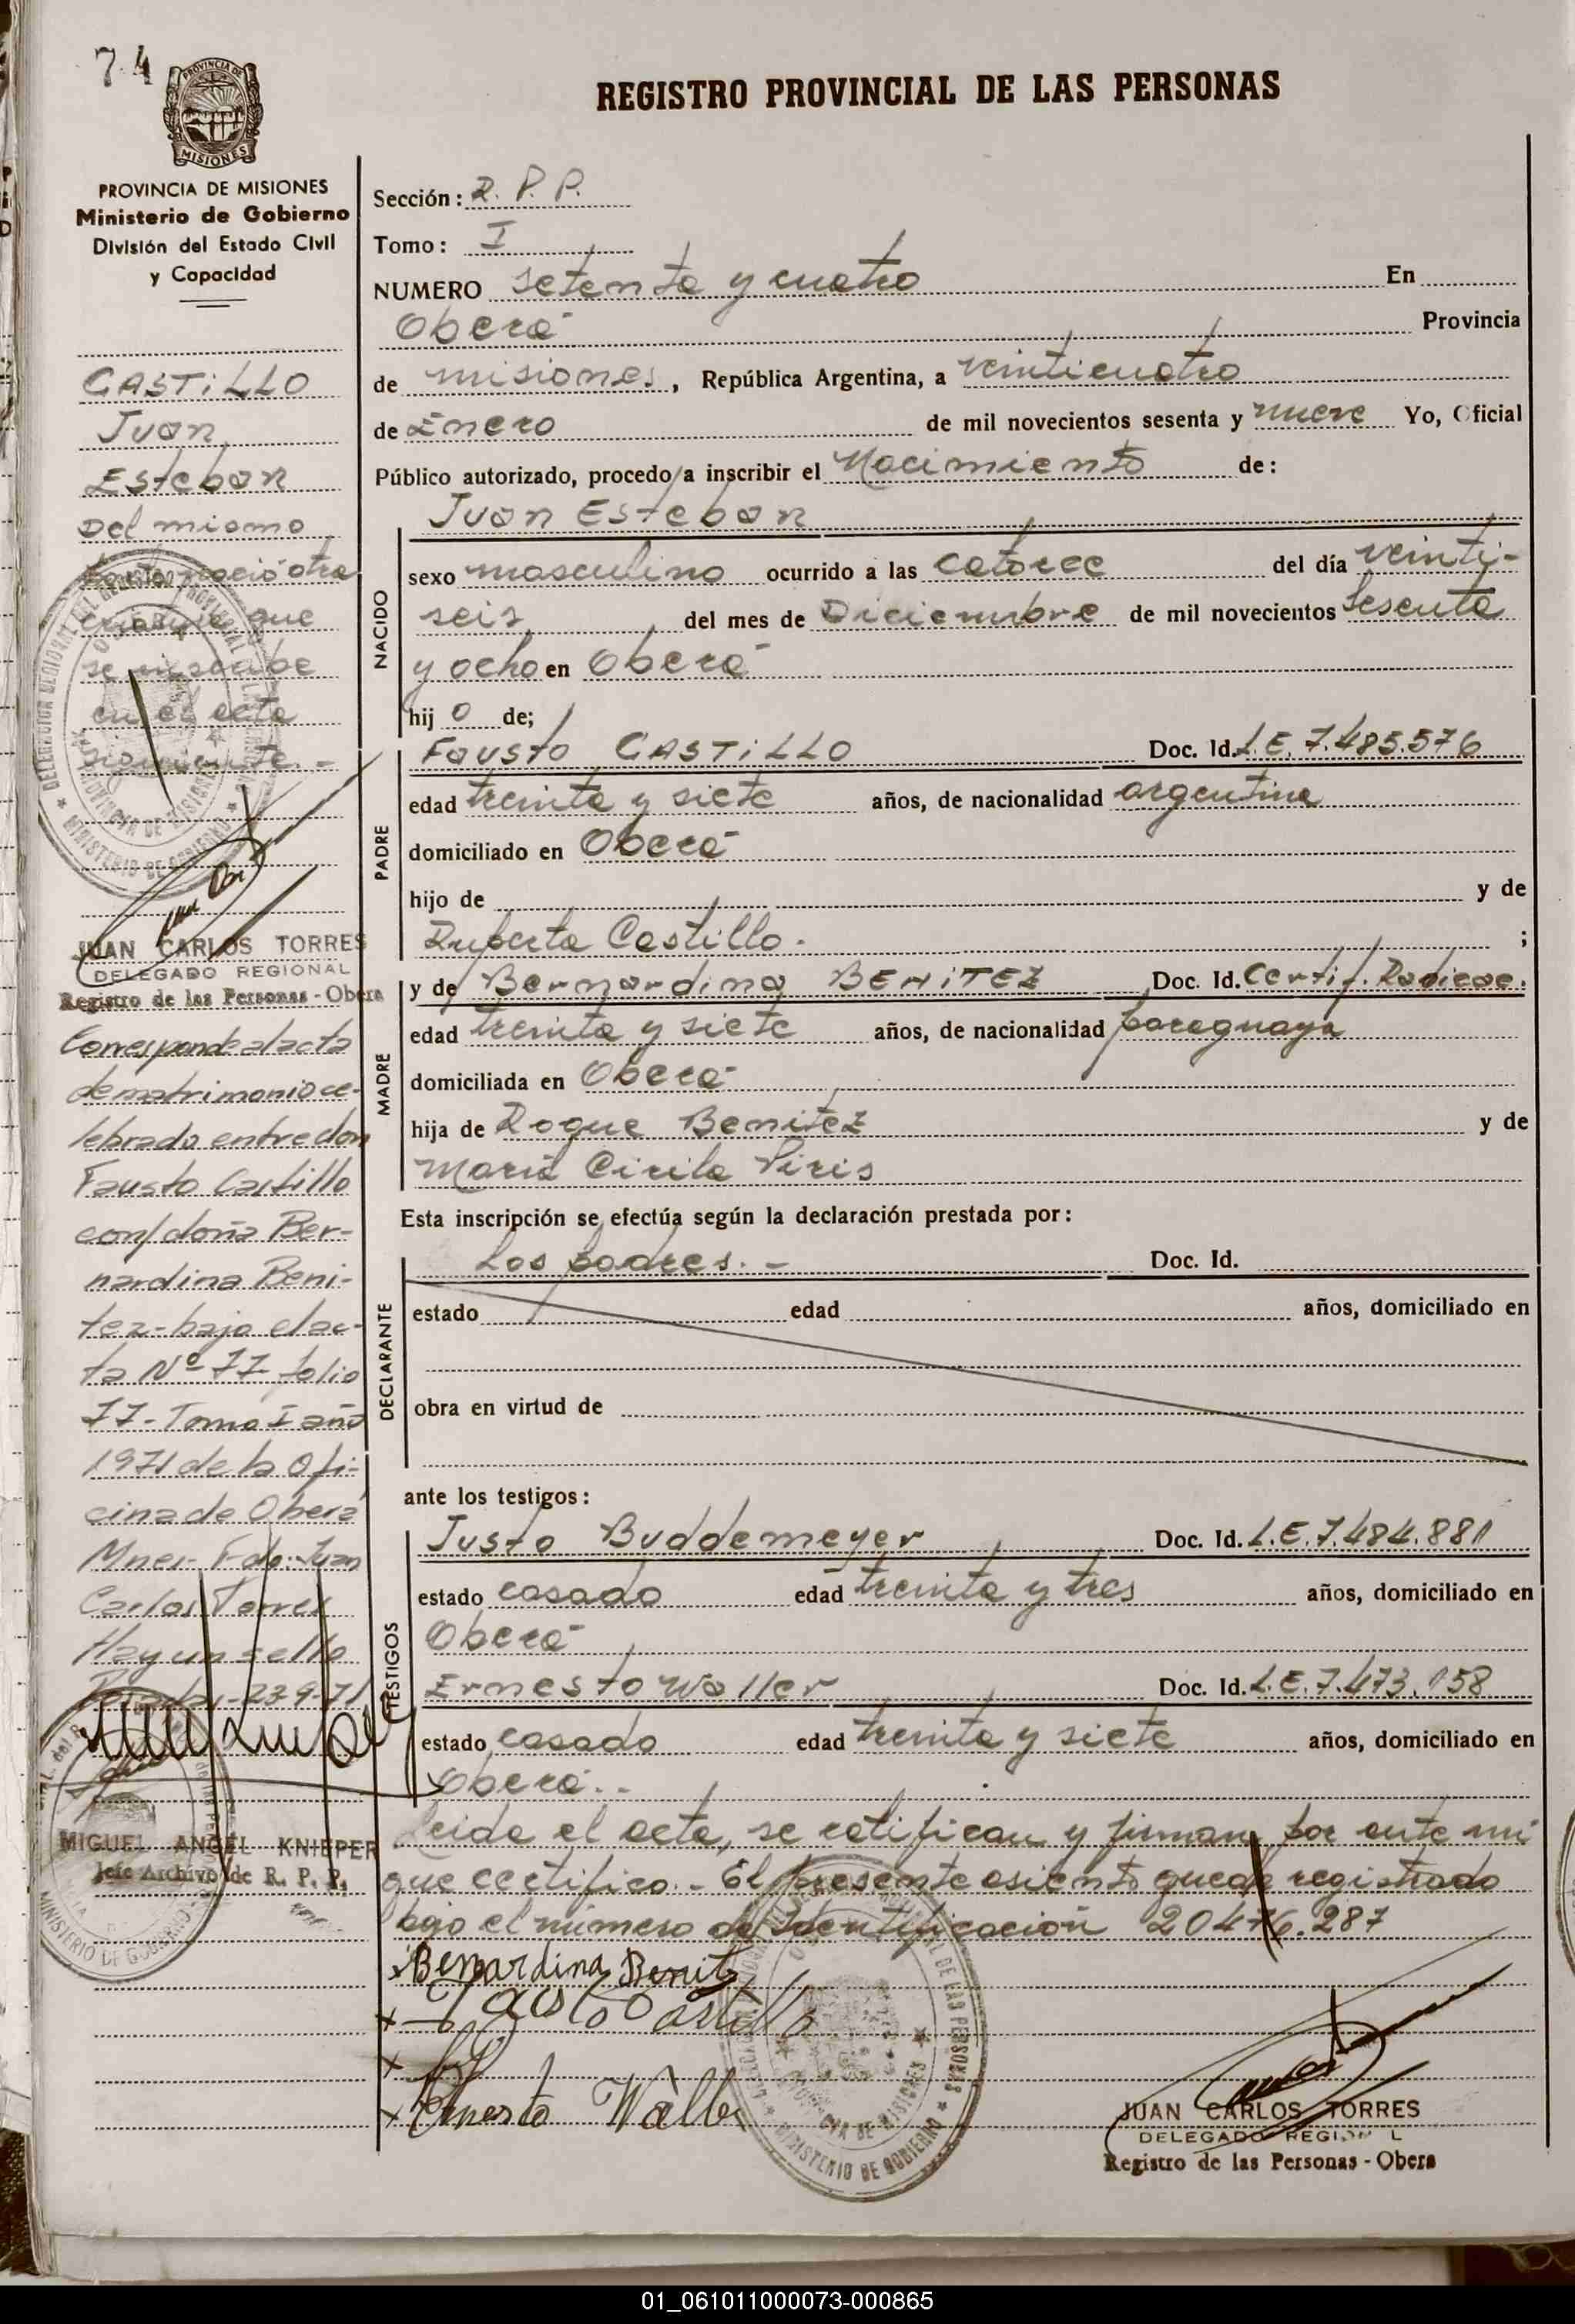 74
PROVINCIA DE
MISIONES
REGISTRO PROVINCIAL DE LAS PERSONAS
PROVINCIA DE MISIONES
Ministerio de Gobierno
División del Estado Civil
y Capacidad
CASTiLLO
Juan
Esteban
Del mismo
parto nació otra
criatura que
se inscribe
en el acta
siguiente.-
JUAN CARLOS TORRES
DELEGADO REGIONAL
Registro de las Personas - Obera
Corresponde al acta
de matrimonio ce-
lebrado entre don
Fausto Castillo
con doña Ber-
nardina Beni-
tez - bajo el ac-
ta Nº 77 folio
77 - Tomo I año
1971 de la Ofi-
cina de Oberá
Mnes- Fdo: Juan
Carlos Torres
Hay un sello
Posadas - 23-9-71
MIGUEL ANGEL KNIEPER
Jefe Archivo de R. P. P.
Sección: R. P. P.
Tomo: I
NUMERO setenta y cuatro En
Oberá Provincia
de misiones, República Argentina, a veinticuatro
de Enero de mil novecientos sesenta y nueve Yo, Oficial
Público autorizado, procedo a inscribir el Nacimiento de:
Juan Esteban
NACIDO
sexo masculino ocurrido a las catorce del día veinti-
seis del mes de Diciembre de mil novecientos sesenta
y ocho en Oberá
hij o de;
PADRE
Fausto CASTiLLO Doc. Id. L.E. 7.485.576
edad treinta y siete años, de nacionalidad argentina
domiciliado en Oberá
hijo de y de
Ruperta Castillo. ;
MADRE
y de Bernardina BENiTEZ Doc. Id. Certif. Radicac.
edad treinta y siete años, de nacionalidad paraguaya
domiciliada en Oberá
hija de Roque Benitez y de
María Cirila Piris
Esta inscripción se efectúa según la declaración prestada por:
DECLARANTE
Los padres. - Doc. Id.
estado edad años, domiciliado en
obra en virtud de
ante los testigos:
TESTIGOS
Justo Buddemeyer Doc. Id. L.E. 7.484.881
estado casado edad treinta y tres años, domiciliado en
Oberá
Ernesto Waller Doc. Id. L.E. 7.473.158
estado casado edad treinta y siete años, domiciliado en
Oberá.-
Leida el acta, se ratifican y firman por ante mi
que certifico.- El presente asiento queda registrado
bajo el número de Identificación 20476.287
Bernardina Benitz
Fausto Castillo
Ernesto Waller
DE LAS PERSONAS
PROVINCIA DE MISIONES
MINISTERIO DE GOBIERNO
JUAN CARLOS TORRES
DELEGADO REGION L
Registro de las Personas - Obera
01_061011000073-000865